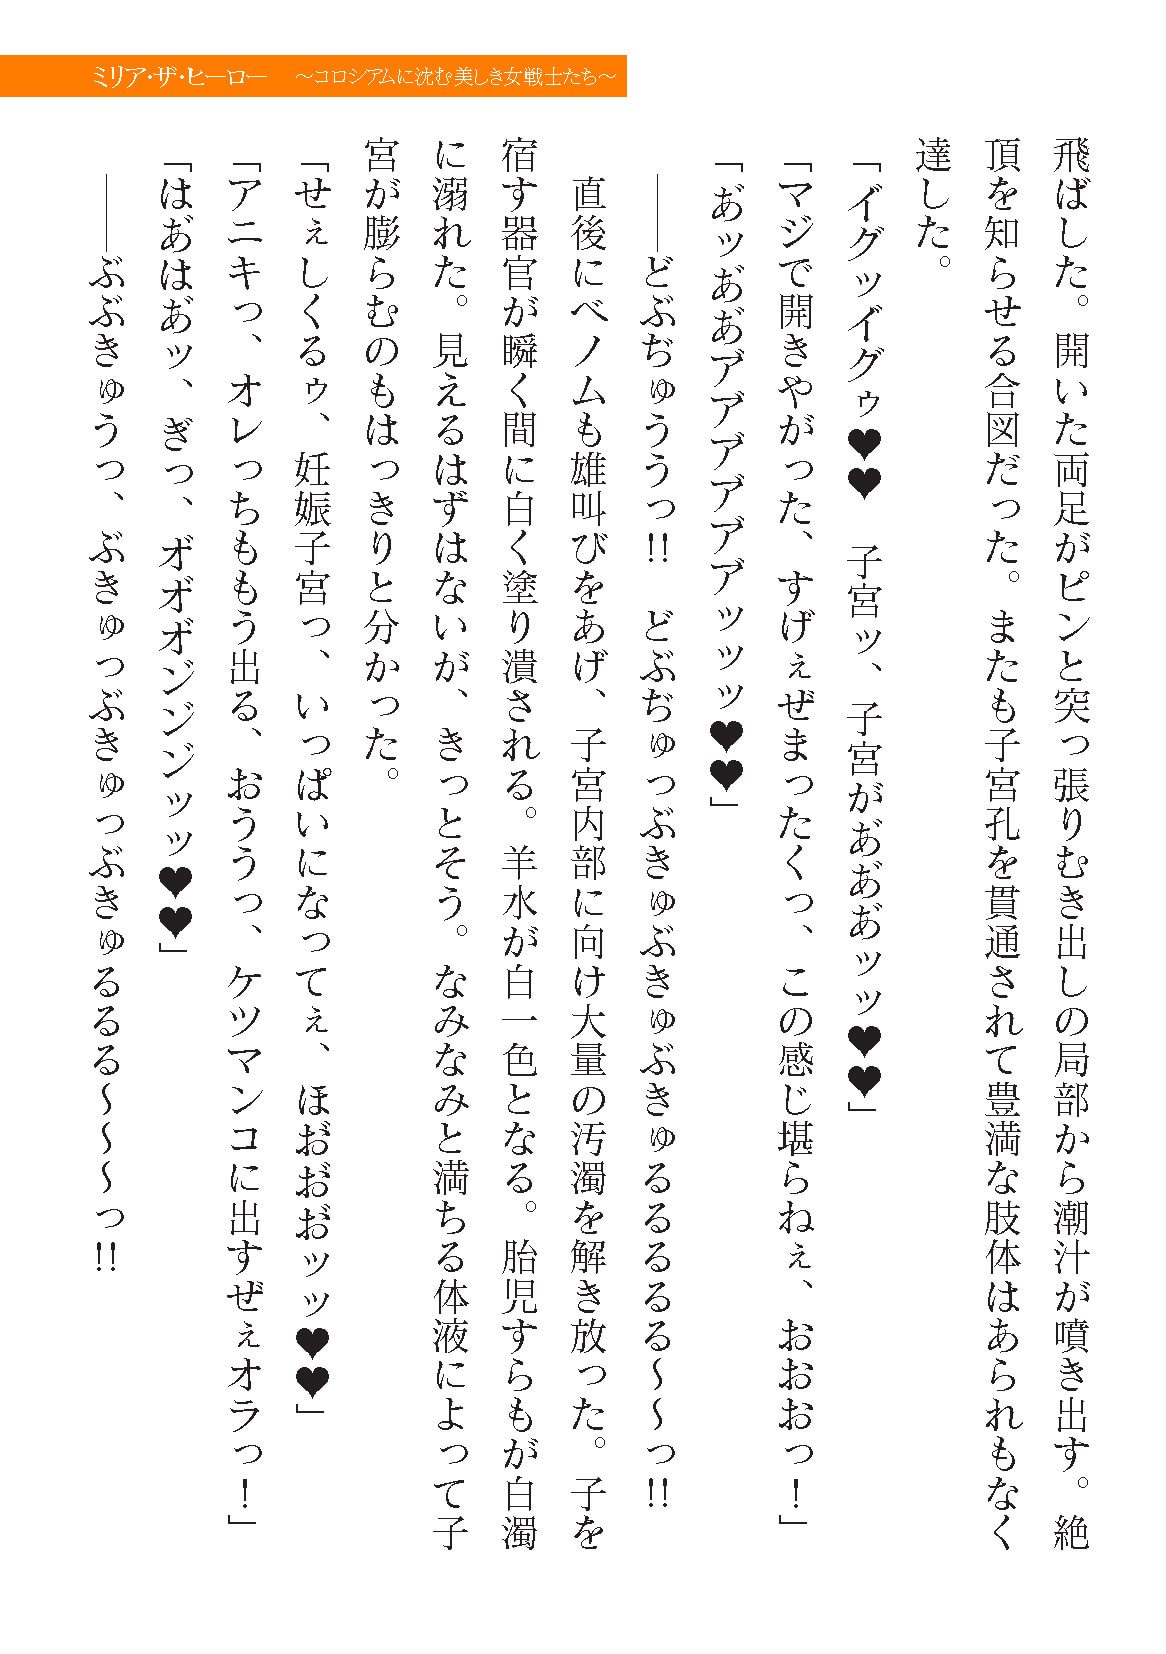 ミリア・ザ・ヒーロー　～コロシアムに沈む美しき女戦士たち～
飛ばした。開いた両足がピンと突っ張りむき出しの局部から潮汁が噴き出す。絶
頂を知らせる合図だった。またも子宮孔を貫通されて豊満な肢体はあられもなく
達した。
「イ゛グッイ゛グゥ♥♥　子宮ッ、子宮があ゛あ゛あ゛ッッ♥♥」
「マジで開きやがった、すげぇぜまったくっ、この感じ堪らねぇ、おおおっ！」
「あ゛ッあ゛あ゛ア゛ア゛ア゛ア゛ア゛ア゛ッッッ♥♥」
――どぶぢゅううっ!!　どぶぢゅっぶきゅぶきゅぶきゅるるるる～～っ!!
　直後にベノムも雄叫びをあげ、子宮内部に向け大量の汚濁を解き放った。子を
宿す器官が瞬く間に白く塗り潰される。羊水が白一色となる。胎児すらもが白濁
に溺れた。見えるはずはないが、きっとそう。なみなみと満ちる体液によって子
宮が膨らむのもはっきりと分かった。
「せぇしくるゥ、妊娠子宮っ、いっぱいになってぇ、ほお゛お゛お゛ッッ♥♥」
「アニキっ、オレっちももう出る、おううっ、ケツマンコに出すぜぇオラっ！」
「はあ゛はあ゛ッ、ぎっ、オ゛オ゛オ゛ン゛ン゛ン゛ッッ♥♥」
――ぶぶきゅうっ、ぶきゅっぶきゅっぶきゅるるる～～～っ!!